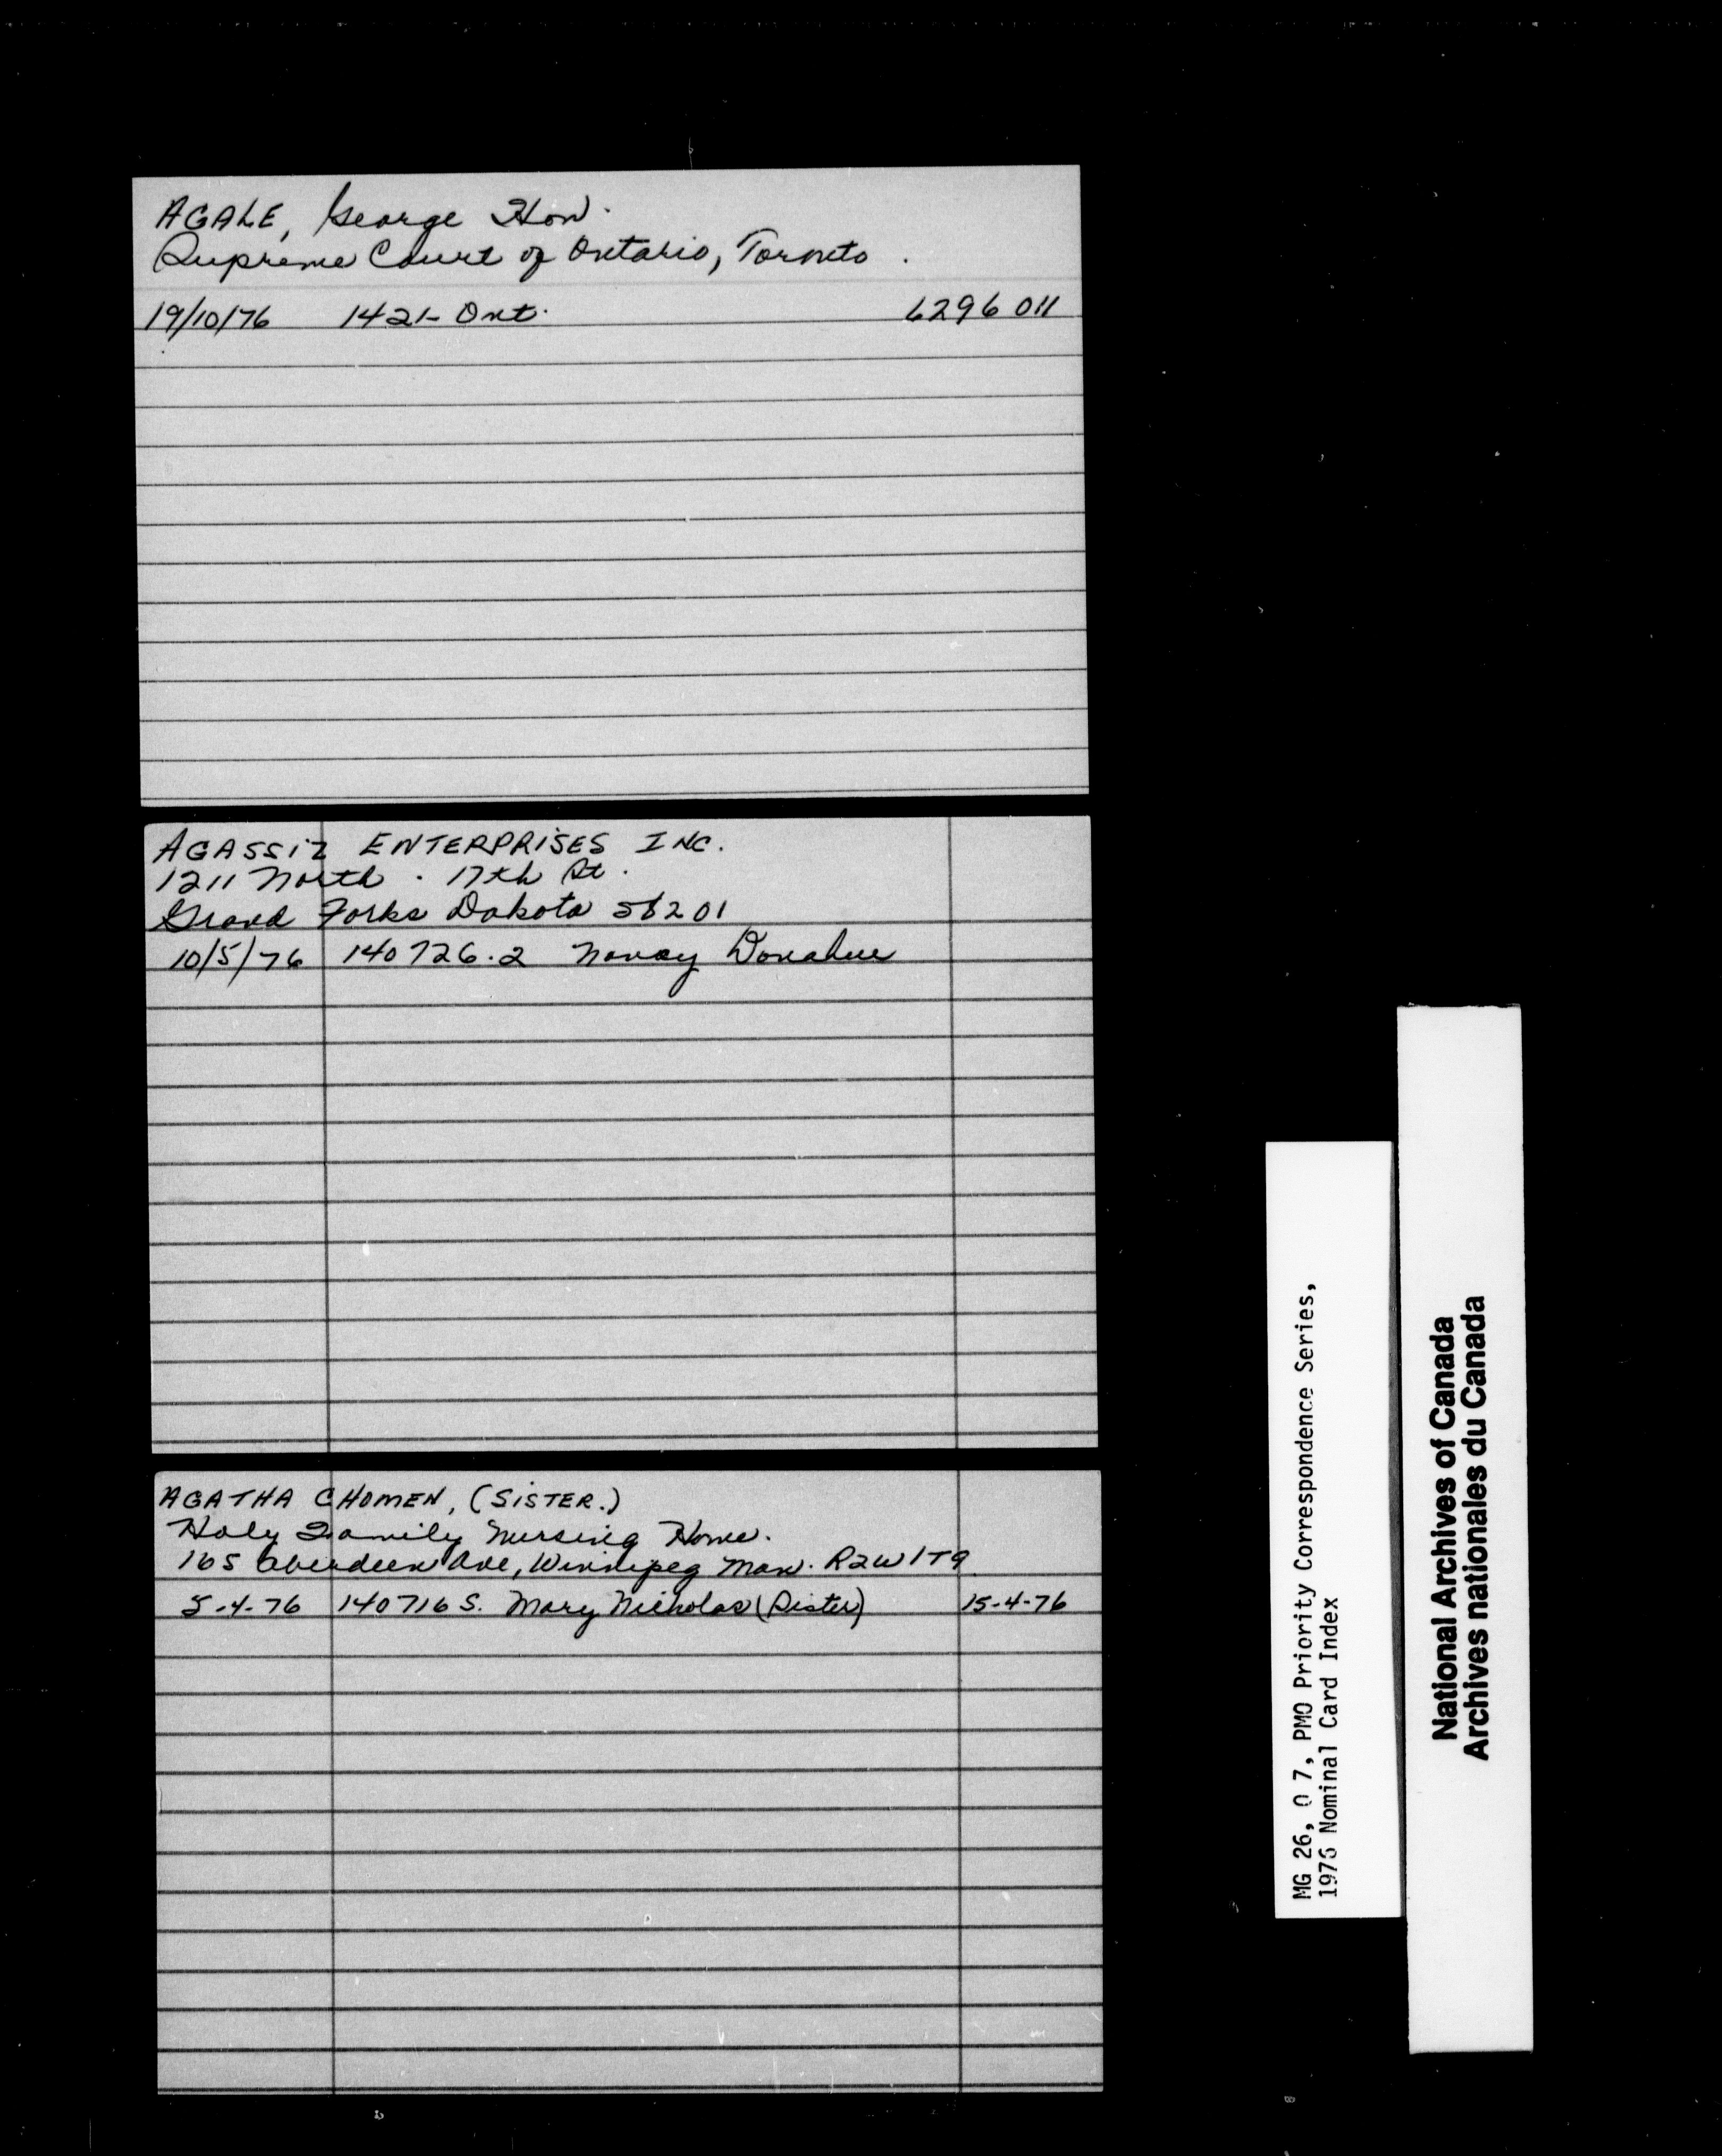 AGALE, George Hon.
Supreme Court of Ontario, Toronto.
19/10/76 1421-Ont. 6296 011
AGASSIZ ENTERPRISES INC.
1211 North. 17th St.
Grand Forks Dakota 58201
10/5/76 140726.2 Nancy Donahue
AGATHA CHOMEN, (SISTER.)
Holy Family Nursing Home.
165 Aberdeen Ave, Winnipeg Man. R2W1T9
5-4-76 140716 S. Mary Nicholas (Sister) 15-4-76
MG 26, O 7, PMO Priority Correspondence Series,
1976 Nominal Card Index
National Archives of Canada
Archives nationales du Canada